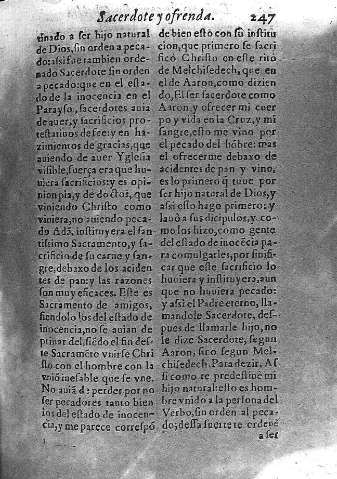 Sacerdote y ofrenda. 247
tinado a ser hijo natural
de Dios, sin orden a peca-
do: assi fue tambien orde-
nado Sacerdote sin orden
a pecado: que en el esta-
do de la inocencia en el
Parayso, sacerdotes auia
de auer, y sacrificios pro-
testatiuos de fee: y en ha-
zimientos de gracias, que
auiendo de auer Yglesia
visible, fuerça era que hu-
uiera sacrificios: y es opi-
nion pia, y de doctos, que
viniendo Christo como
viniera, no auiendo peca-
do Adã, instituyera el san-
tissimo Sacramento, y sa-
crificio de su carne y san-
gre, debaxo de los aciden
tes de pan: y las razones
son muy eficaces. Este es
Sacramento de amigos,
siendolo los del estado de
inocencia, no se auian de
priuar del, siẽdo el fin des-
te Sacramẽto vnirse Chri
sto con el hombre con la
vniõ inefable que se vne.
No auiã de perder por no
ser pecadores tanto bien
los del estado de inocen-
cia, y me parece correspõ
de bien esto con su institu
cion, que primero se sacri
ficò Christo en este rito
de Melchisedech, que en
el de Aaron, como dizien
do, El ser sacerdote como
Aaron, y ofrecer mi cuer
po y vida en la Cruz, y mi
sangre, esto me vino por
el pecado del hõbre: mas
el ofrecerme debaxo de
accidentes de pan y vino,
es lo primero q̃ tuue por
ser hijo natural de Dios, y
assi esto hago primero: y
lauò a sus dicipulos, y co-
mo los hizo, como gente
del estado de inocẽcia pa-
ra comulgarles, por sinifi-
car que este sacrificio lo
huuiera y instituyera, aun
que no huuiera pecado:
y assi el Padre eterno, lla-
mandole Sacerdote, des-
pues de llamarle hijo, no
le dize Sacerdote, segun
Aaron, sino segun Mel-
chisedech. Para dezir, As
si como te predestinè mi
hijo natural: esto es hom-
bre vnido a la persona del
Verbo, sin orden al peca-
do; dessa suerte te ordenè
a ser